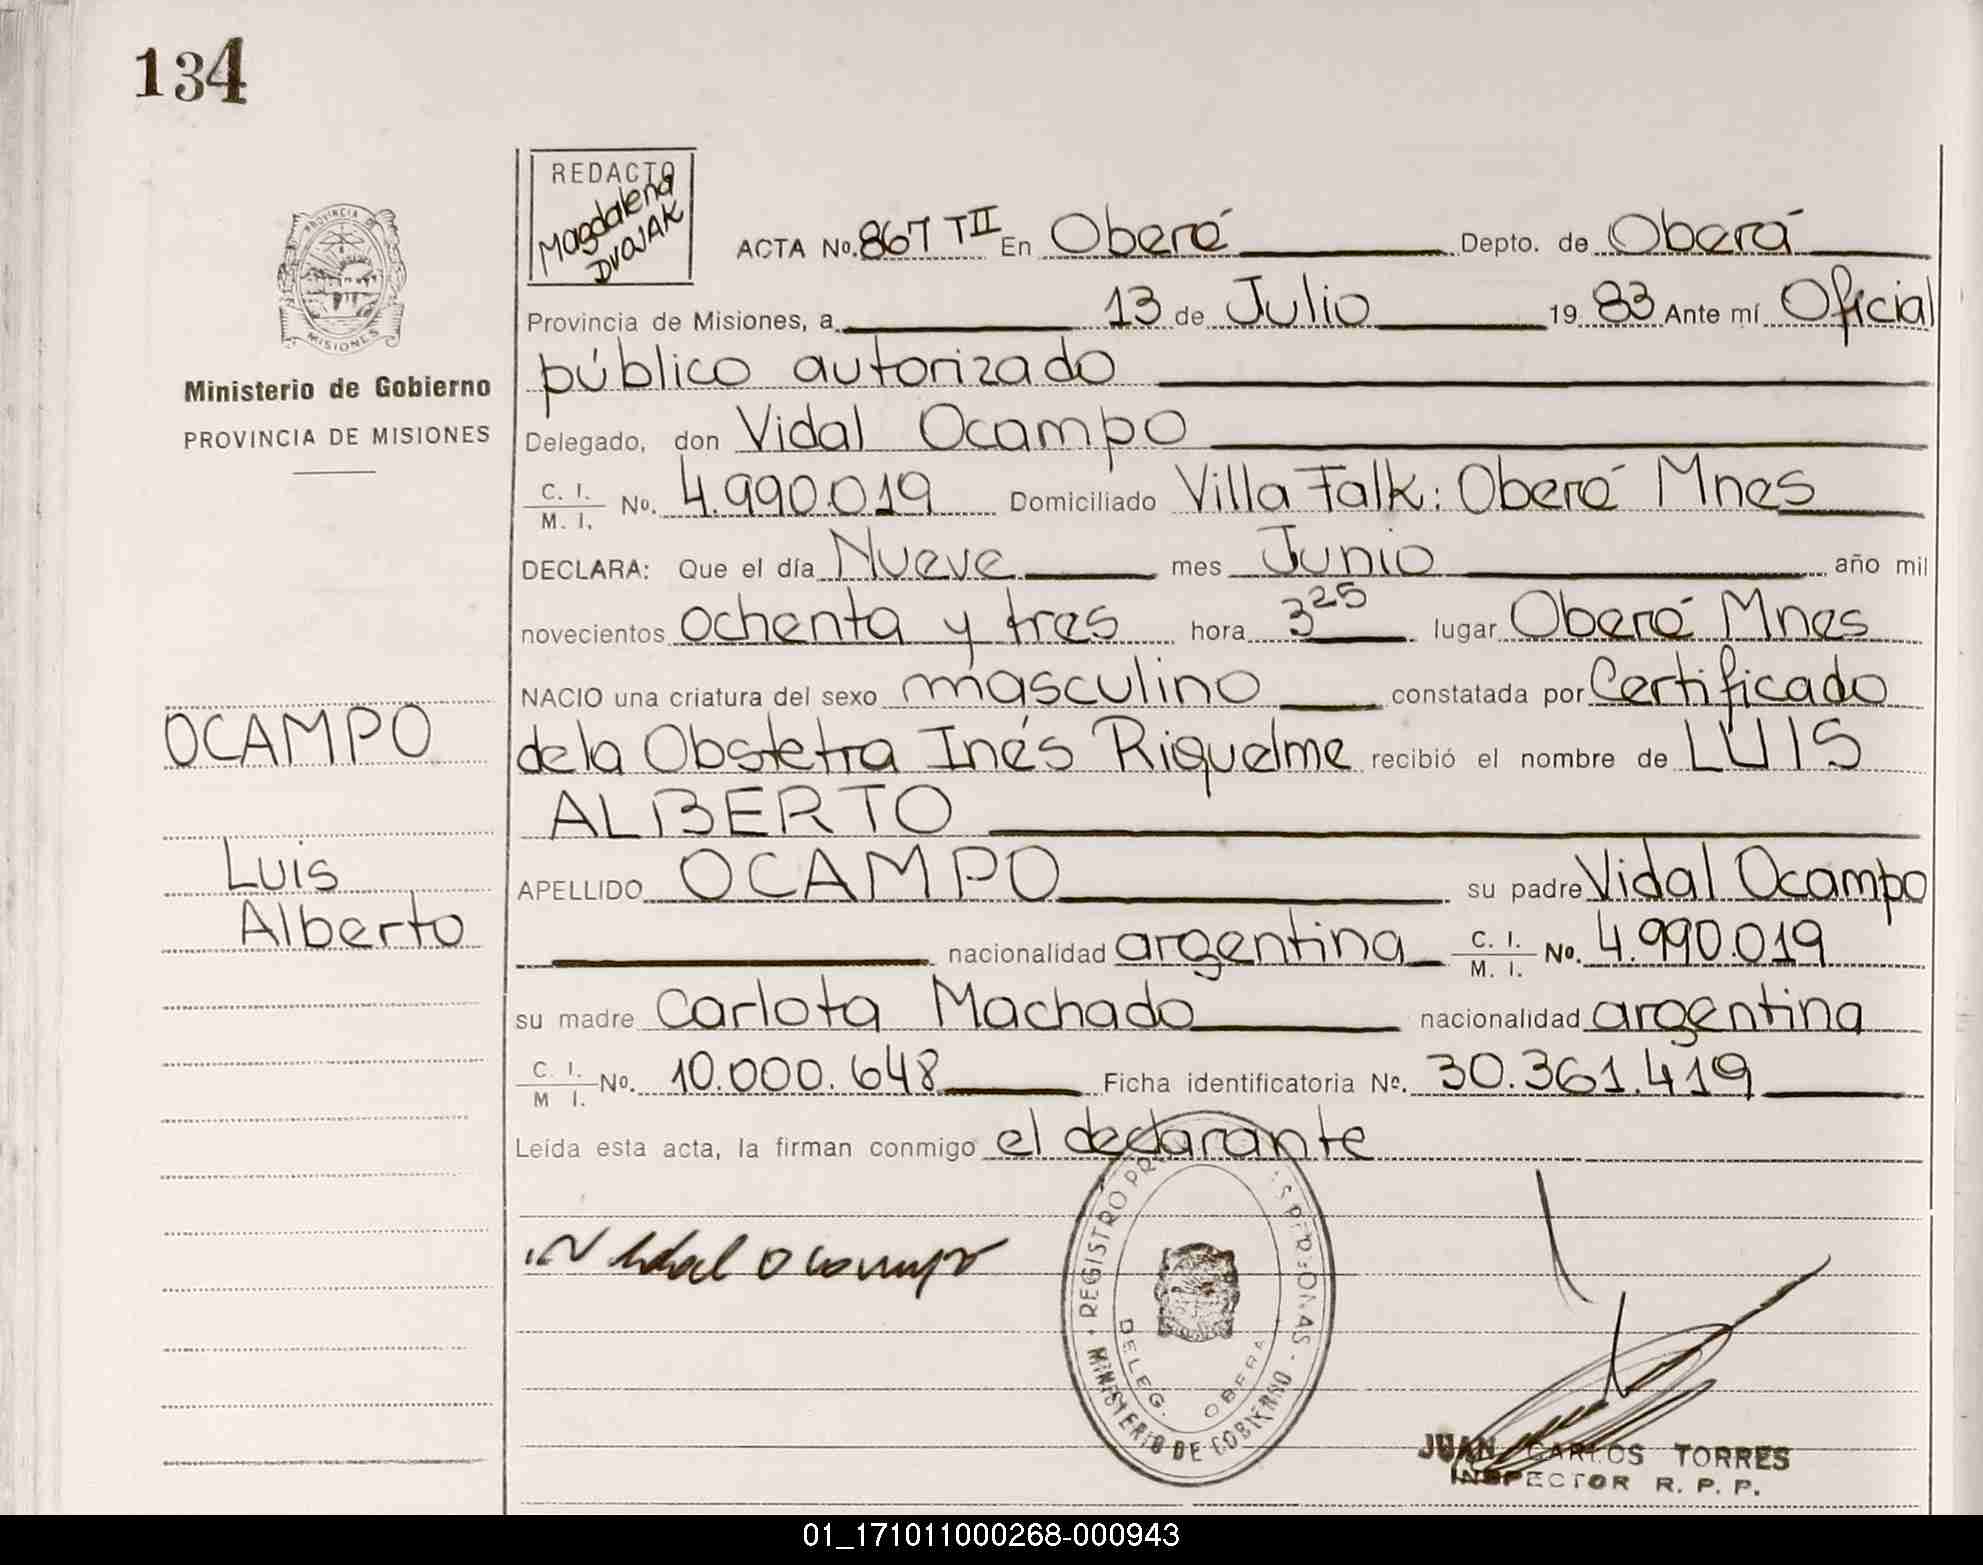 134
REDACTO
Magdalena
DVOJAK
PROVINCIA DE
MISIONES
Ministerio de Gobierno
PROVINCIA DE MISIONES
ACTA No. 867 TII En Oberá Depto. de Oberá
Provincia de Misiones, a 13 de Julio 19 83 Ante mí Oficial
público autorizado
Delegado, don Vidal Ocampo
C. I. / M. I. No. 4.990.019 Domiciliado Villa Falk: Oberá Mnes
DECLARA: Que el día Nueve mes Junio año mil
novecientos ochenta y tres hora 3 25 lugar Oberá Mnes
NACIO una criatura del sexo masculino constatada por Certificado
de la Obstetra Inés Riquelme recibió el nombre de LUIS
ALBERTO
APELLIDO OCAMPO su padre Vidal Ocampo
nacionalidad argentina C. I. / M. I. No. 4.990.019
su madre Carlota Machado nacionalidad argentina
C. I. / M I. No. 10.000.648 Ficha identificatoria No. 30.361.419
Leída esta acta, la firman conmigo el declarante
OCAMPO
Luis
Alberto
Vidal Ocampo
REGISTRO PERSONAS
MINISTERIO DE GOBIERNO
DELEG. OBERA
JUAN CARLOS TORRES
INSPECTOR R. P. P.
01_171011000268-000943